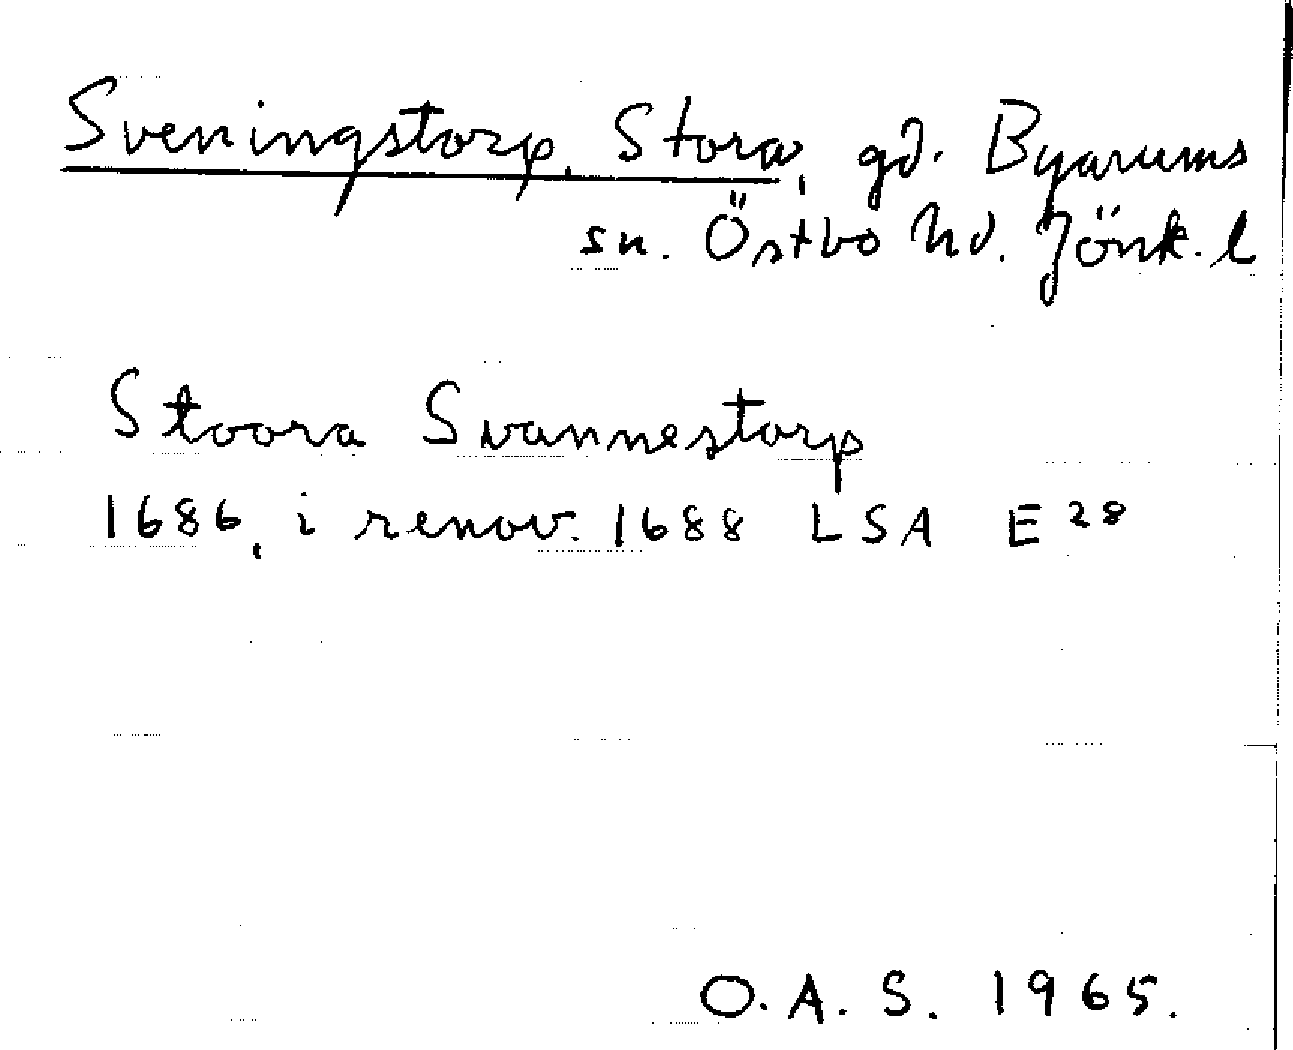 Sveningstorp, Stora, gd. Byarums
sn. Östbo hd. Jönk. l
Stoora Svannestorp
1686, i renov. 1688 LSA E 28
O. A. S. 1965.